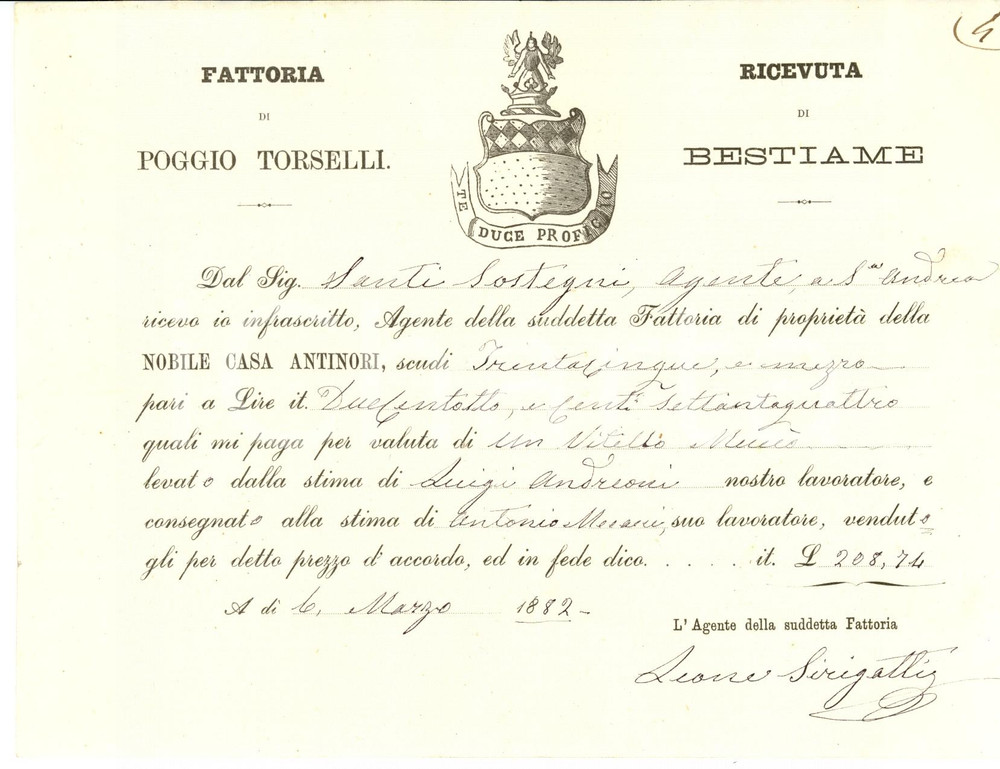 4
FATTORIA
DI
POGGIO TORSELLI.
RICEVUTA
DI
BESTIAME
TE DUCE PROFICIO
Dal Sig. Santi Sostegni, Agente, a S.ᵗ Andrea
ricevo io infrascritto, Agente della suddetta Fattoria di proprietà della
NOBILE CASA ANTINORI, scudi Trentacinque, e mezzo
pari a Lire it. Duecentotto, e Centⁱ Settantaquattro
quali mi paga per valuta di Un Vitello
levato dalla stima di Luigi Andreoni nostro lavoratore, e
consegnato alla stima di Antonio suo lavoratore, venduto
gli per detto prezzo d'accordo, ed in fede dico. . . . . . it. L 208,74
A dì 6, Marzo 1882-
L'Agente della suddetta Fattoria
Leone Sirigatti